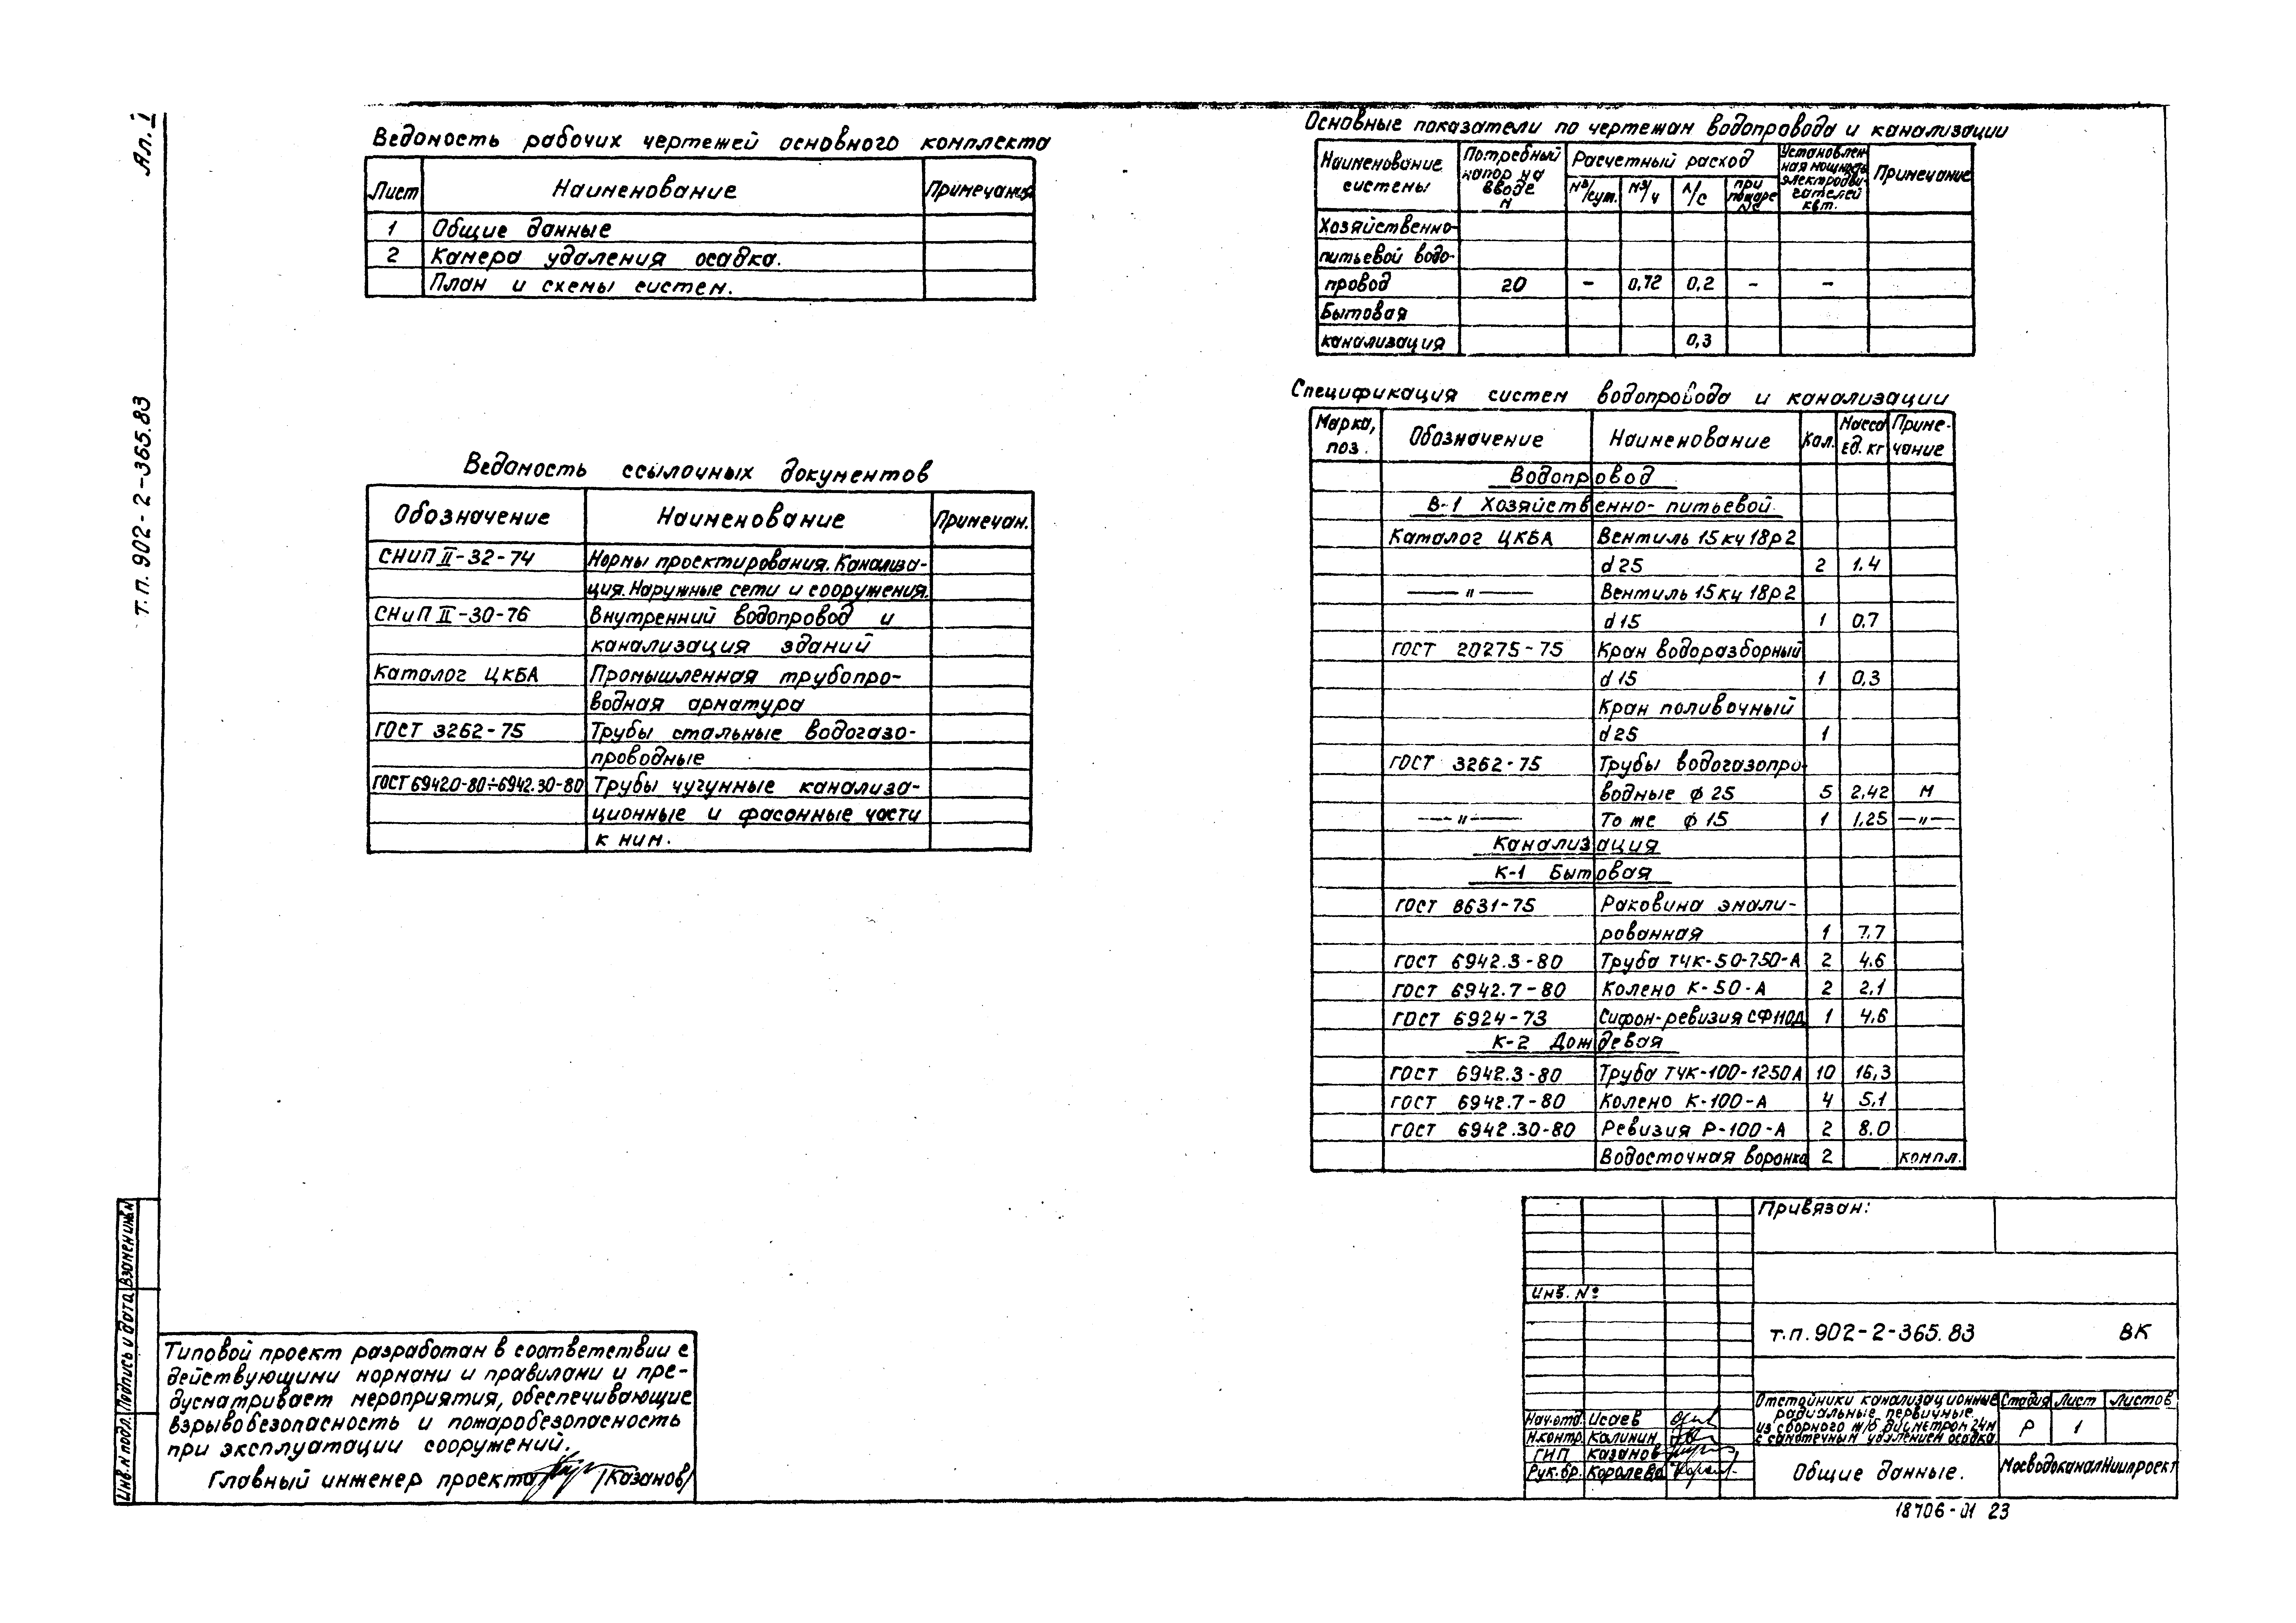 Ал. 1
т.п. 902-2-365.83
Ведомость рабочих чертежей основного комплекта
Лист Наименование Примечания
1 Общие данные
2 Камера удаления осадка.
План и схемы систем.
Ведомость ссылочных документов
Обозначение Наименование Примечан.
СНиП II-32-74 Нормы проектирования. Канализа-
ция. Наружные сети и сооружения.
СНиП II-30-76 Внутренний водопровод и
канализация зданий
Каталог ЦКБА Промышленная трубопро-
водная арматура
ГОСТ 3262-75 Трубы стальные водогазо-
проводные
ГОСТ 6942.0-80÷6942.30-80 Трубы чугунные канализа-
ционные и фасонные части
к ним.
Основные показатели по чертежам водопровода и канализации
Наименование системы Потребный напор на вводе м Расчетный расход Установлен-ная мощность электродви-гателей квт. Примечание
м³/сут. м³/ч л/с при пожаре л/с
Хозяйственно-
питьевой водо-
провод 20 – 0,72 0,2 – –
Бытовая
канализация 0,3
Спецификация систем водопровода и канализации
Марка, поз. Обозначение Наименование Кол. Масса ед. кг Приме-чание
Водопровод
В-1 Хозяйственно-питьевой
Каталог ЦКБА Вентиль 15кч 18р2
d 25 2 1.4
—— " —— Вентиль 15кч 18р2
d 15 1 0,7
ГОСТ 20275-75 Кран водоразборный
d 15 1 0,3
Кран поливочный
d 25 1
ГОСТ 3262-75 Трубы водогазопро-
водные ϕ 25 5 2,42 м
—— " —— То же ϕ 15 1 1,25 — " —
Канализация
К-1 Бытовая
ГОСТ 8631-75 Раковина эмали-
рованная 1 7,7
ГОСТ 6942.3-80 Труба ТЧК-50-750-А 2 4.6
ГОСТ 6942.7-80 Колено К-50-А 2 2,1
ГОСТ 6924-73 Сифон-ревизия СФ110Д 1 4,6
К-2 Дождевая
ГОСТ 6942.3-80 Труба ТЧК-100-1250А 10 16,3
ГОСТ 6942.7-80 Колено К-100-А 4 5,1
ГОСТ 6942.30-80 Ревизия Р-100-А 2 8.0
Водосточная воронка 2 компл.
Типовой проект разработан в соответствии с
действующими нормами и правилами и пре-
дусматривает мероприятия, обеспечивающие
взрывобезопасность и пожаробезопасность
при эксплуатации сооружений.
Главный инженер проекта /Казанов/
Инв. № подл. Подпись и дата Взамен инв. №
Привязан:
Инв. №
т.п. 902-2-365.83 ВК
Нач. отд. Исаев
Н.контр. Калинин
ГИП Казанов
Рук. бр. Королева
Отстойники канализационные
радиальные первичные
из сборного ж/б диаметром 24м
с самотечным удалением осадка
Стадия Лист Листов
Р 1
Общие данные.
МосводоканалНИИпроект
18706-01 23